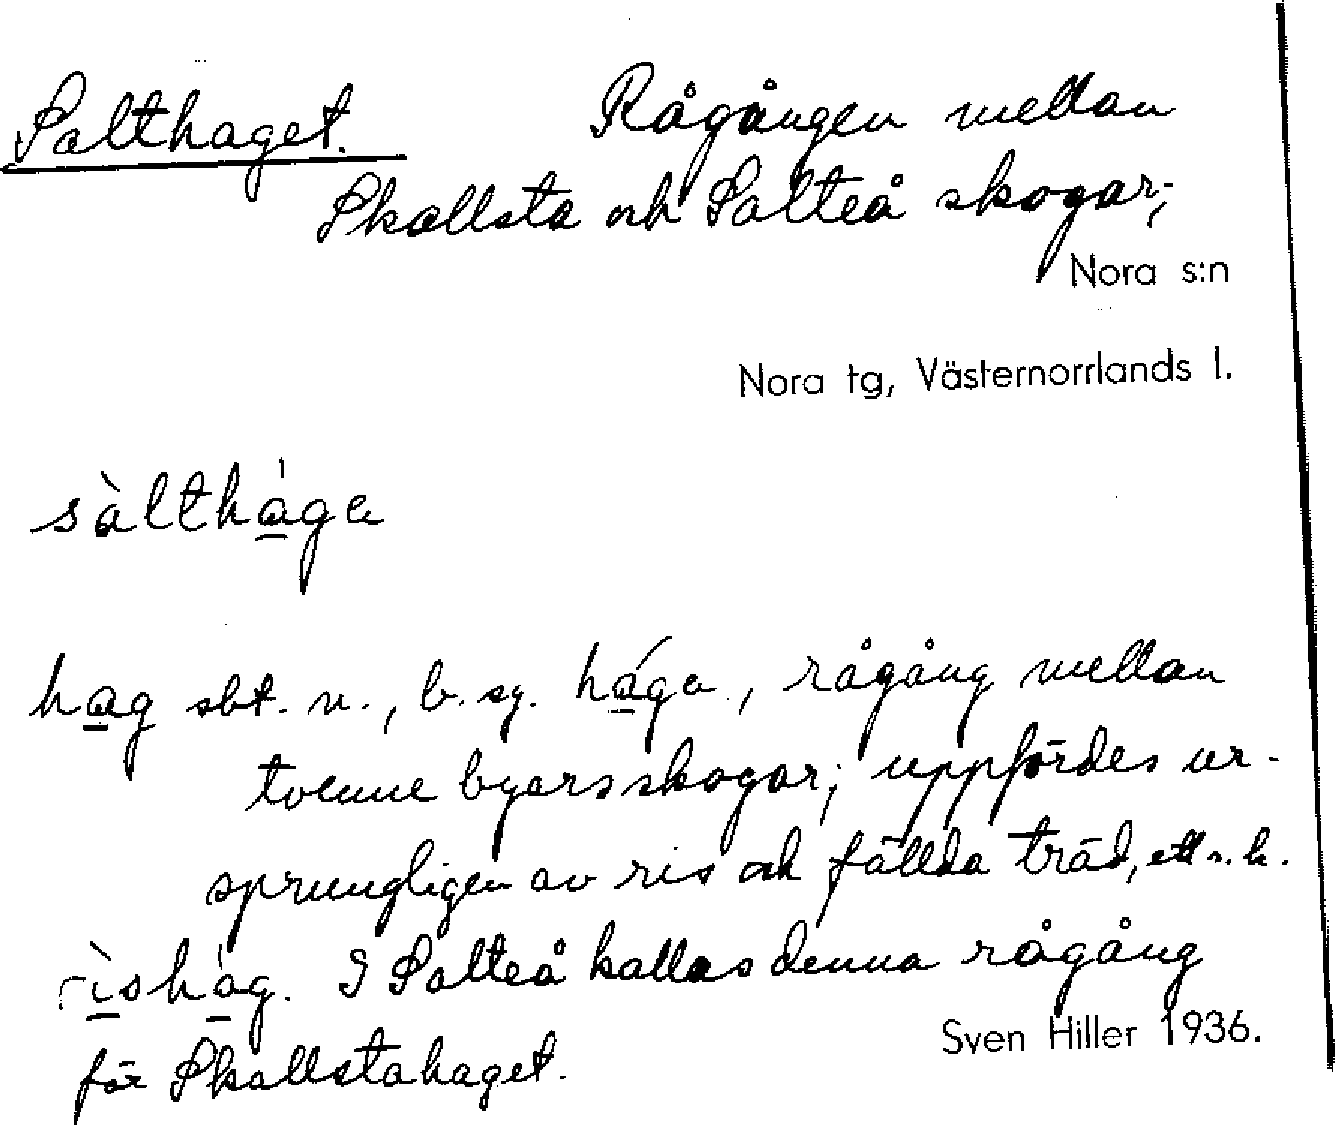 Salthaget. Rågången mellan
Skallsta och Salteå skogar;
Nora s:n
Nora tg, Västernorrlands l.
sàltha̲̍ga
ha̲g sbt. n., b. sg. há̲ga, rågång mellan
tvenne byarsskogar; uppfördes ur-
sprungligen av ris och fällda träd, ett s. k.
rì̲sha̲̍g. I Salteå kallas denna rågång
för Skallstahaget.
Sven Hiller 1936.